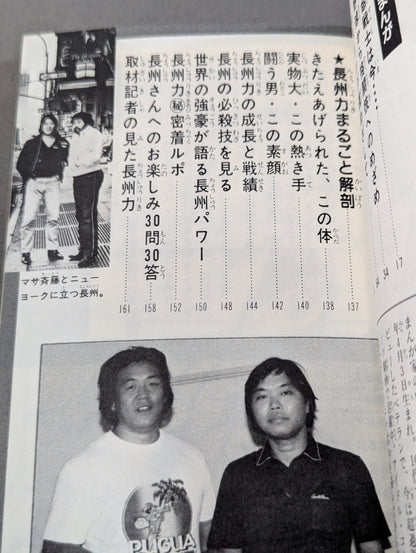 まんが
★長州力まるごと解剖 137
きたえあげられた、この体 138
実物大・この熱き手 140
闘う男・この素顔 142
長州力の成長と戦績 144
長州の必殺技を見る 148
世界の強豪が語る長州パワー 150
長州力㊙密着ルポ 152
長州さんへのお楽しみ30問30答 158
取材記者の見た長州力 161
17
34
マサ斉藤とニュー
ヨークに立つ長州。
PUGUA